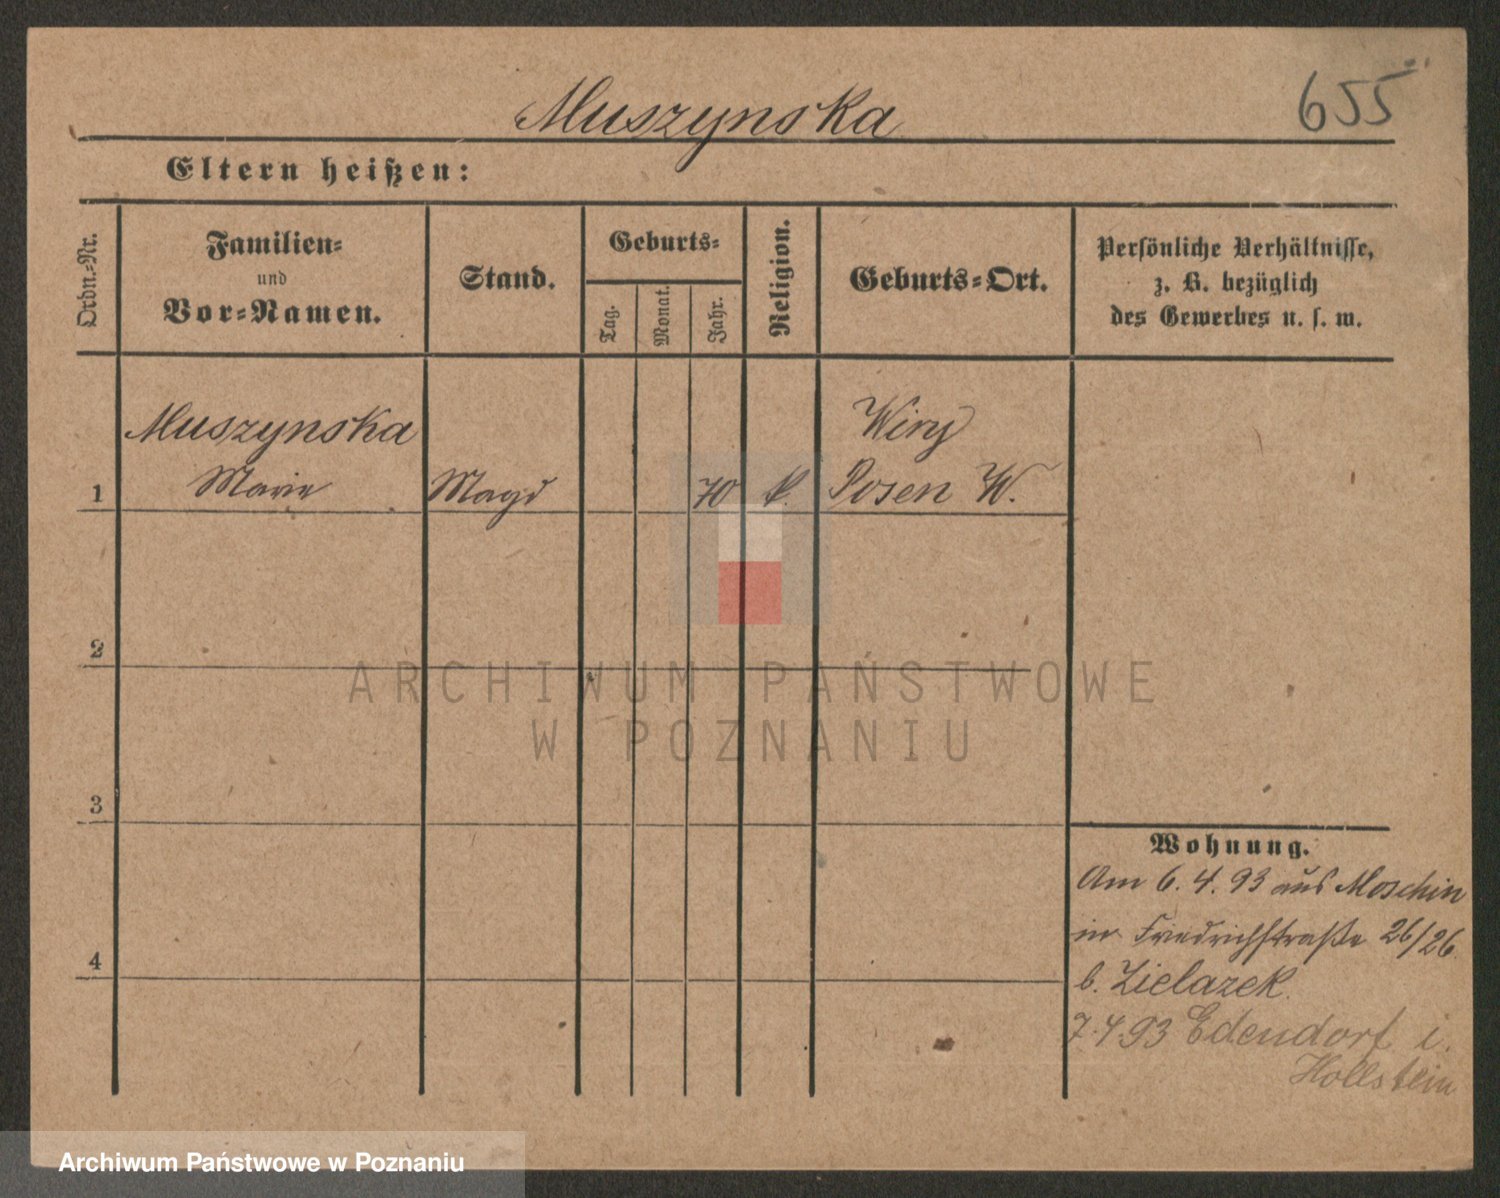 Muszynska
655
Eltern heißen:
Ordn.-Nr.
Familien-
und
Vor-Namen.
Stand.
Geburts-
Tag.
Monat.
Jahr.
Religion.
Geburts-Ort.
Persönliche Verhältnisse,
z. B. bezüglich
des Gewerbes u. s. w.
Muszynska
Wiry
1 Marie Magd 70 k. Posen W.
2
3
4
Wohnung.
Am 6. 4. 93 aus Moschin
in Friedrichstraße 26/26
b. Zielazek.
7.4.93 Edendorf i.
Hollstein
ARCHIWUM PAŃSTWOWE
W POZNANIU
Archiwum Państwowe w Poznaniu